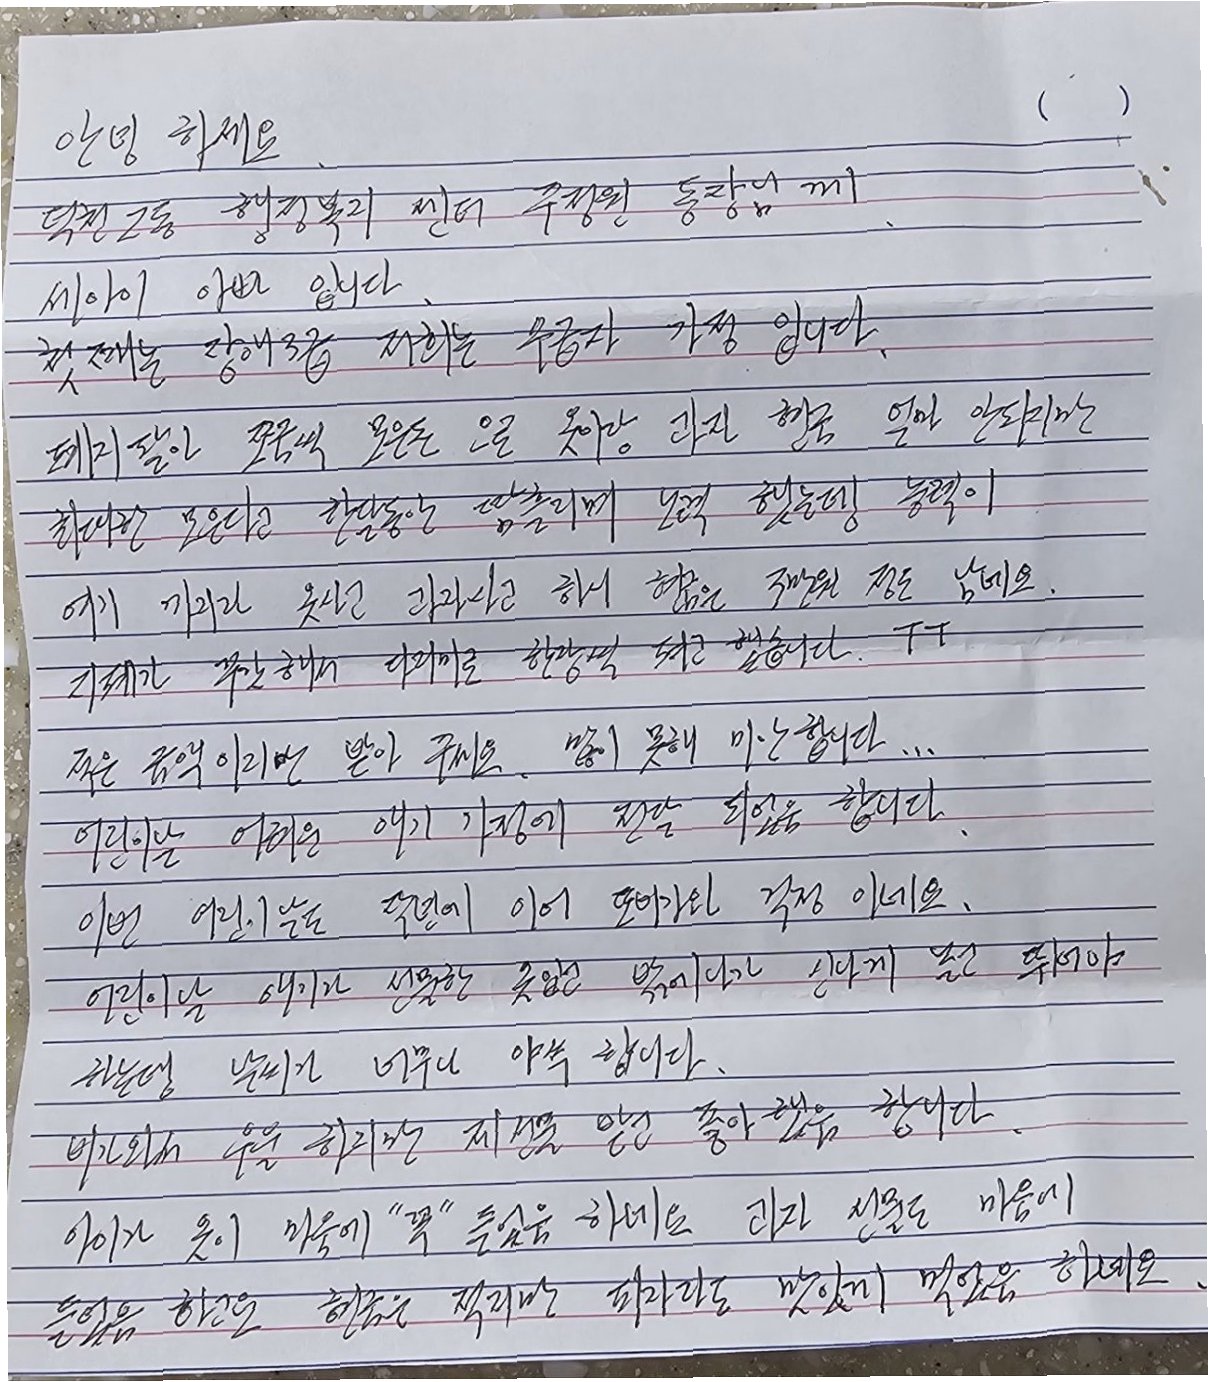 (    )
안녕 하세요.
덕천2동 행정복지 센터 주정원 동장님 께.
세아이 아빠 입니다.
첫째는 장애3급 저희는 수급자 가정 입니다.
폐지팔아 조금씩 모은돈 으로 옷이랑 과자 현금 얼마 안되지만
최대한 모은다고 한달동안 땀흘리며 노력 했는뎅 능력이
여기 까지라 옷사고 과자사고 하니 현금은 3만원 정도 남네요.
지폐가 꾸깃해서 다리미로 한장씩 펴고 했습니다. ㅜㅜ
적은 금액 이지만 받아 주세요. 많이 못해 미안합니다...
어린이날 어려운 애기 가정에 전달 되었음 합니다.
이번 어린이날도 작년에 이어 또비가와 걱정 이네요.
어린이날 애기가 선물한 옷입고 밖에나가 신나게 놀고 뛰어야
하는뎅 날씨가 너무나 야속 합니다.
비가와서 우울 하지만 제선물 받고 좋아했음 합니다.
아이가 옷이 마음에 "꼭" 들었음 하네요 과자 선물도 마음에
들었음 하고요 현금은 적지만 피자라도 맛있게 먹었음 하네요.